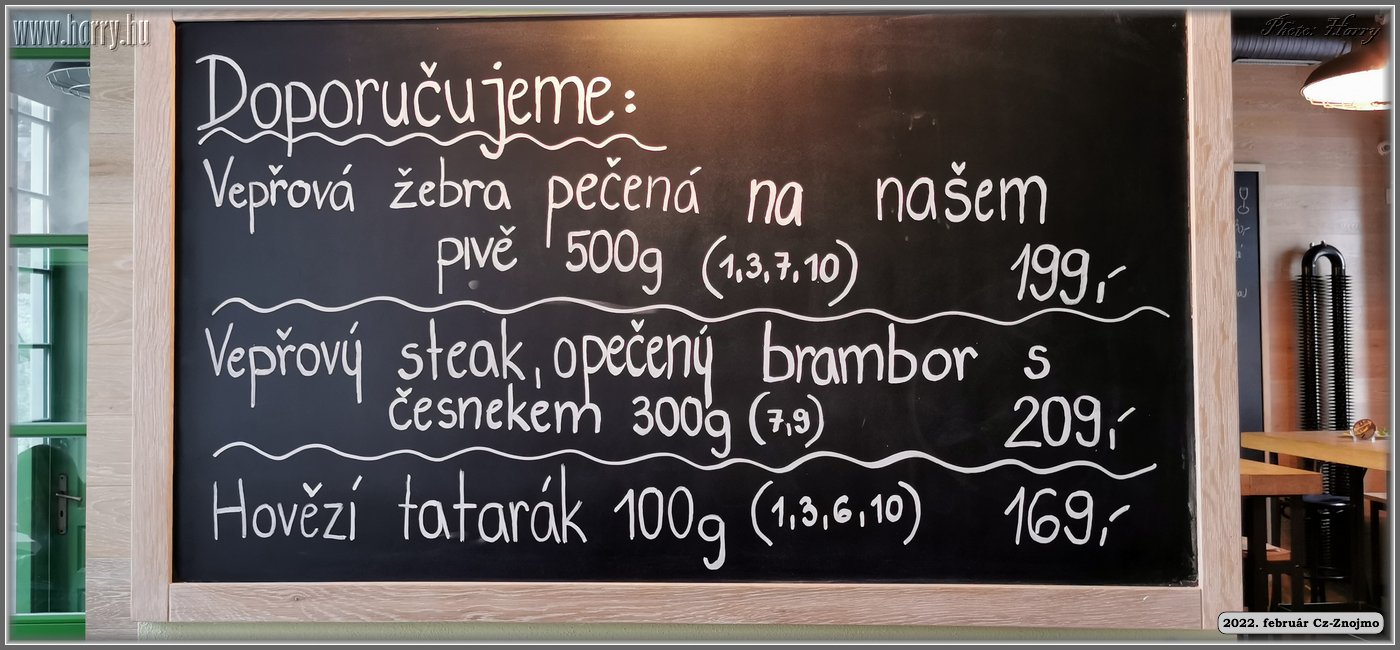 www.harry.hu
Photo: Harry
Doporučujeme:
Vepřová žebra pečená na našem
pivě 500g (1,3,7,10) 199,-
Vepřový steak, opečený brambor s
česnekem 300g (7,9) 209,-
Hovězí tatarák 100g (1,3,6,10) 169,-
2022. február Cz-Znojmo